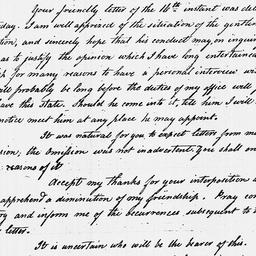 Your friendly letter of the 16th instant was del
day. I am well apprized of the situation of the gentle
tion, and sincerely hope that his conduct may on inquir
as to justify the opinion which I have long entertained
h for many reasons to have a personal interview wi
will probably be long before the duties of my office will
leave this state. Should he come into it, tell him I will
notice meet him at any place he may appoint.
It was natural for you to expect letters from m
sion, the omission was not inadvertent. you shall on
reasons of it
Accept my thanks for your interposition a
apprehend a diminution of my friendship. Pray con
ry and inform me of the occurrences subsequent to
letter.
It is uncertain who will be the bearer of this.